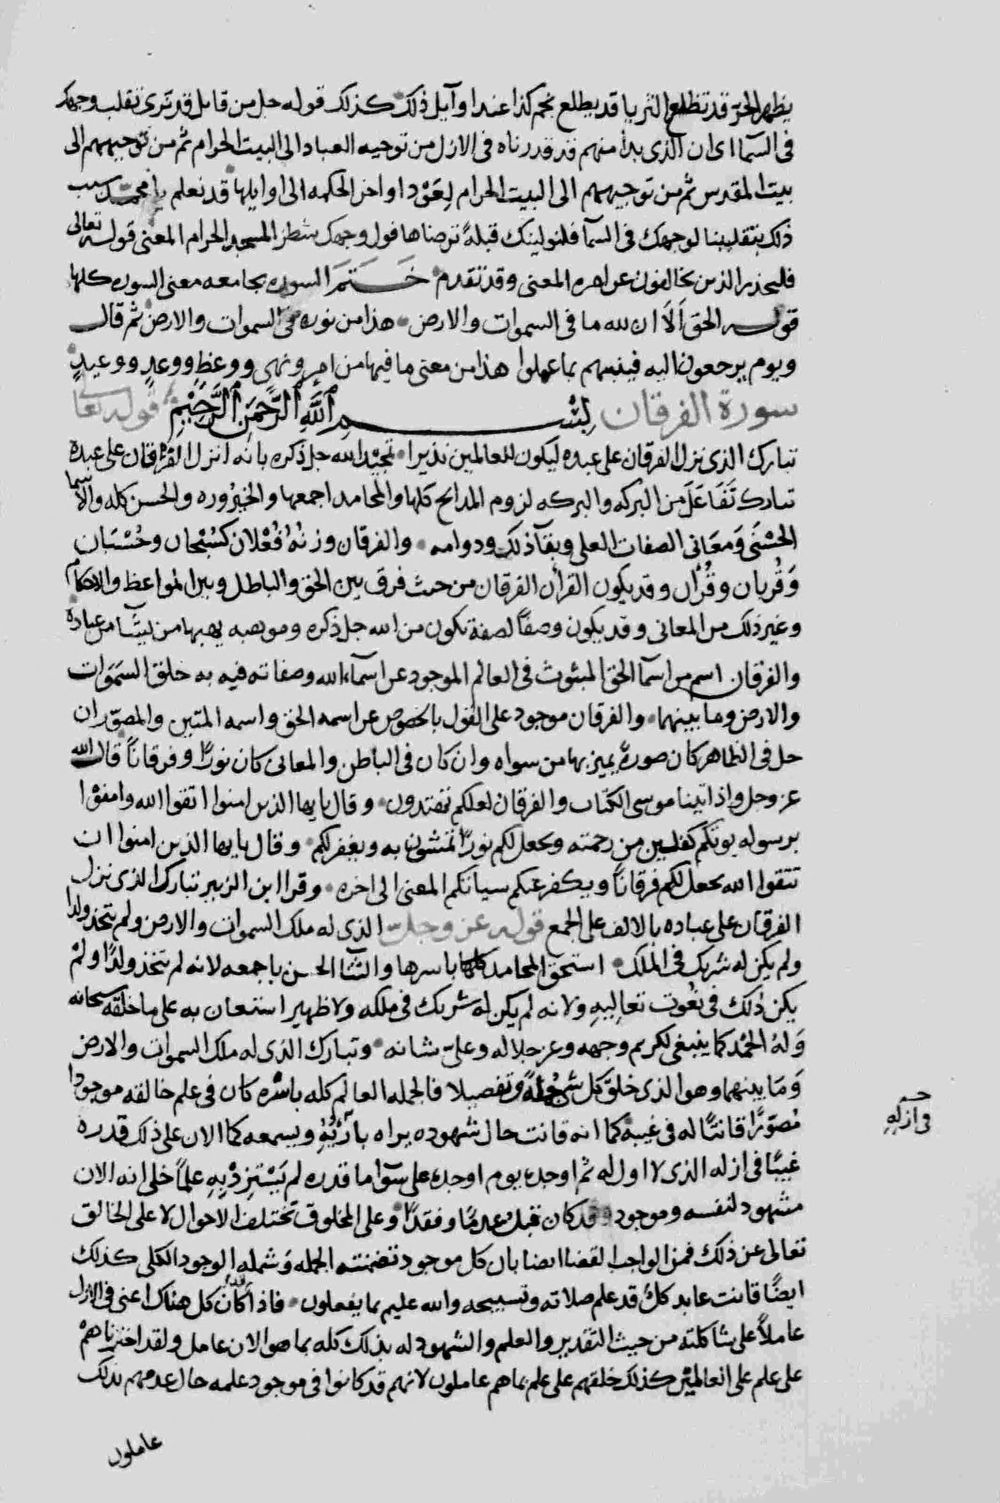 يظهر الحر قد تطلع الثريا قد يطلع نجم كذا عندا وآيل ذلك كذلك قوله جل من قايل قد نرى تقلب وجهك
في السما اى ان الذى بدا منهم قد قدرناه في الازل من توجيه العباد الى البيت الحرام ثم من توجيههم الى
بيت المقدس ثم من توجيههم الى البيت الحرام لعود اواخر الحكمه الى اوايلها قد نعلم يا محمد سبب
ذلك بتقليبنا لوجهك في السما فلنولينك قبلة ترضاها فول وجهك شطر المسجد الحرام المعنى قوله تعالى
فليحذر الذين يخالفون عن امره المعنى وقد تقدم خَتَمَ السوره بجامعه معنى السوره كلها
قوله الحق اَلَا ان لله ما في السموات والارض هذا من نوره في السموات والارض ثم قال
ويوم يرجعون اليه فينبهم بما عملوا هذا من معنى ما فيها من امر ونهى ووعظ ووعد ووعيد
سورة الفرقان بسم الله الرحمن الرحيم قوله تعالى
تبارك الذى نزل الفرقان على عبده ليكون للعالمين نذيرا تمجيد الله جل ذكره بانه انزل الفرقان على عبده
تبارك تَفَاعَل من البركه والبركه لزوم المدايح كلها والمحامد اجمعها والخير وره والحسن كله والاسما
الحسنى ومعانى الصفات العلى وبقآ ذلك ودوامه والفرقان وزنه فُعْلان كسُبْحان وحُسْبان
وقُربان وقُرآن وقد يكون القرآن الفرقان من حيث فرق بين الحق والباطل وبين المواعظ والاحكام
وغير ذلك من المعانى وقد يكون وصفًا لصفة تكون من الله جل ذكره وموهبه يهبها من يشآ من عباده
والفرقان اسم من اسما الحق المبثوث في العالم الموجود عن اسمآء الله وصفاته فيه به خلق السموات
والارض وما بينهما والفرقان موجود على القول بالخصوص عن اسمه الحق واسمه المتين والمصور ان
حل في الظاهر كان صورة يميز بها من سواه وان كان في الباطن والمعانى كان نورًا وفرقانًا قال الله
عز وجل واذ اتينا موسى الكتاب والفرقان لعلكم تهتدون وقال يايها الذين امنوا اتقوا الله وامنوا
برسوله يوتكم كفلين من رحمته ويجعل لكم نورًا تمشون به ويغفر لكم وقال يايها الذين امنوا ان
تتقوا الله يجعل لكم فرقانًا ويكفر عنكم سياتكم المعنى الى اخره وقرا ابن الزبير تبارك الذى نزل
الفرقان على عباده بالالف على الجمع قوله عز وجل الذى له ملك السموات والارض ولم يتخذ ولدا
ولم يكن له شريك في الملك استحق المحامد كلها باسرها والثنا الحسن باجمعه لانه لم يتخذ ولدًا ولم
يكن ذلك في نعوت تعاليه ولانه لم يكن له شريك في ملكه ولا ظهير استعان به على ما خلقه سبحانه
وله الحمد كما ينبغى لكريم وجهه وعز جلاله وعلى شانه وتبارك الذى له ملك السموات والارض
وما بينهما وهو الذى خلق كل شى جملةً وتفصيلا فالجمله العالم كله باسره كان في علم خالقه موجودا
مصورًا قانتًا له في غيبه كما انه قانت حال شهوده يراه بارئه ويسمعه كما الان على ذلك قدره
غيبًا في ازله الذى لا اول له ثم اوجده يوم اوجده على سوآ ما قدره لم يستزد به علمًا خلى انه الان
مشهود لنفسه وموجود وقد كان قبل عدمًا وفقدًا وعلى المخلوق تختلف الاحوال لا على الخالق
تعالى عن ذلك فمن الواجب القضا ايضا بان كل موجود تضمنته الجمله وشمله الوجود الكلى كذلك
ايضًا قانت عابد كل قد علم صلاته وتسبيحه والله عليم بما يفعلون فاذا كان كل هناك اعنى في الازل
عاملاً على شاكلته من حيث التقدير والعلم والشهود له بذلك كله بما هو الان عامل ولقد اخترناهم
على علم على العالمين كذلك خلقهم على علم بما هم عاملون لانهم قد كانوا في موجود علمه حال عدمهم بذلك
عاملون
في ازله